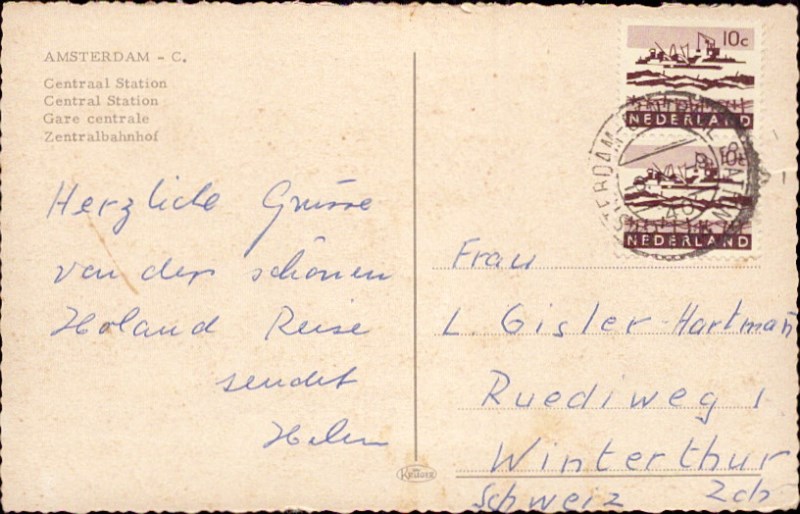 AMSTERDAM - C.
Centraal Station
Central Station
Gare centrale
Zentralbahnhof
Herzliche Grüsse
von der schönen
Holand Reise
sendet
Helen
10c
NEDERLAND
10c
NEDERLAND
Frau
L. Gisler-Hartman
Ruediweg 1
Winterthur
Schweiz Zch